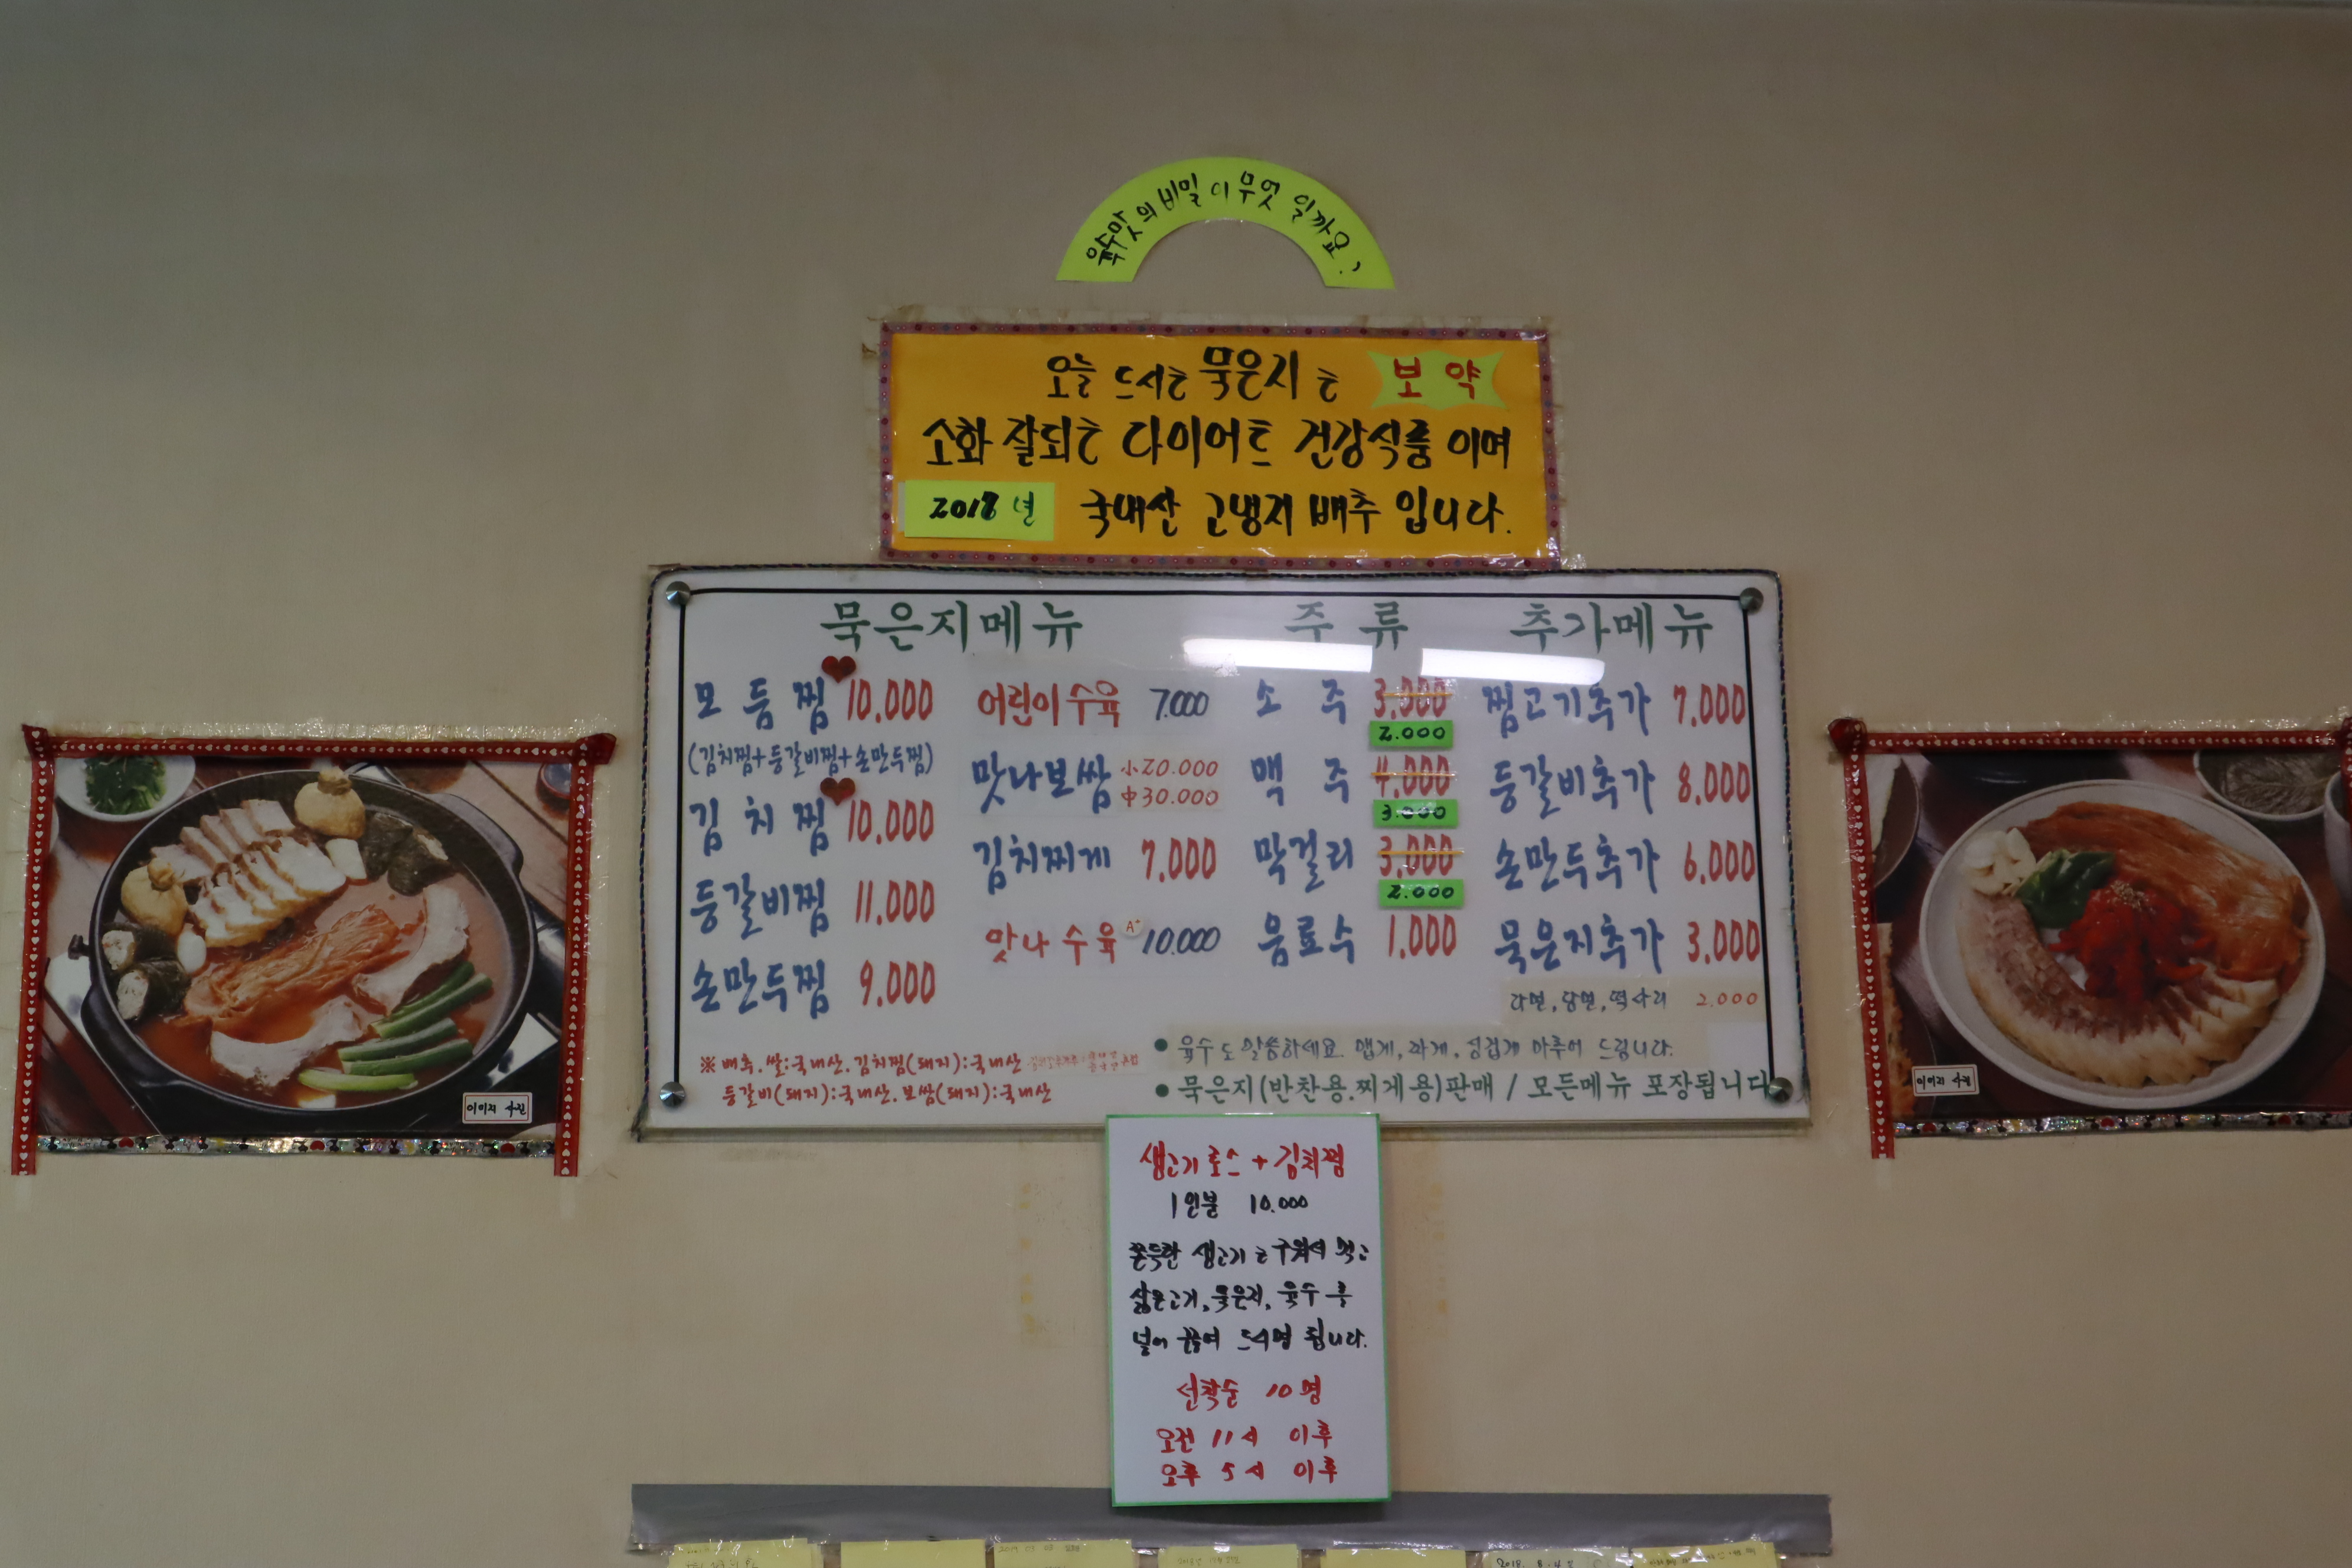 육수맛의 비밀이 무엇 일까요?
오늘 드시는 묵은지는 보약
소화 잘되는 다이어트 건강식품 이며
2018년 국내산 고냉지 배추 입니다.
묵은지메뉴
모듬찜 10.000
(김치찜+등갈비찜+손만두찜)
김치찜 10.000
등갈비찜 11.000
손만두찜 9.000
어린이수육 7.000
맛나보쌈 小20.000
中30.000
김치찌게 7.000
맛나수육 A+ 10.000
주류
소주 3.000
2.000
맥주 4.000
3.000
막걸리 3.000
2.000
음료수 1.000
추가메뉴
찜고기추가 7.000
등갈비추가 8.000
손만두추가 6.000
묵은지추가 3.000
라면, 당면, 떡사리 2.000
※ 배추.쌀:국내산.김치찜(돼지):국내산
등갈비(돼지):국내산.보쌈(돼지):국내산
● 육수도 말씀하세요. 맵게, 짜게, 싱겁게 마추어 드립니다.
● 묵은지(반찬용.찌게용)판매 / 모든메뉴 포장됩니다
생고기 로스 + 김치찜
1인분 10.000
쫀득한 생고기는 구워서 먹고
삶은고기, 묵은지, 육수를
넣어 끓여 드시면 됩니다.
선착순 10명
오전 11시 이후
오후 5시 이후
이미지 사진
이미지 사진